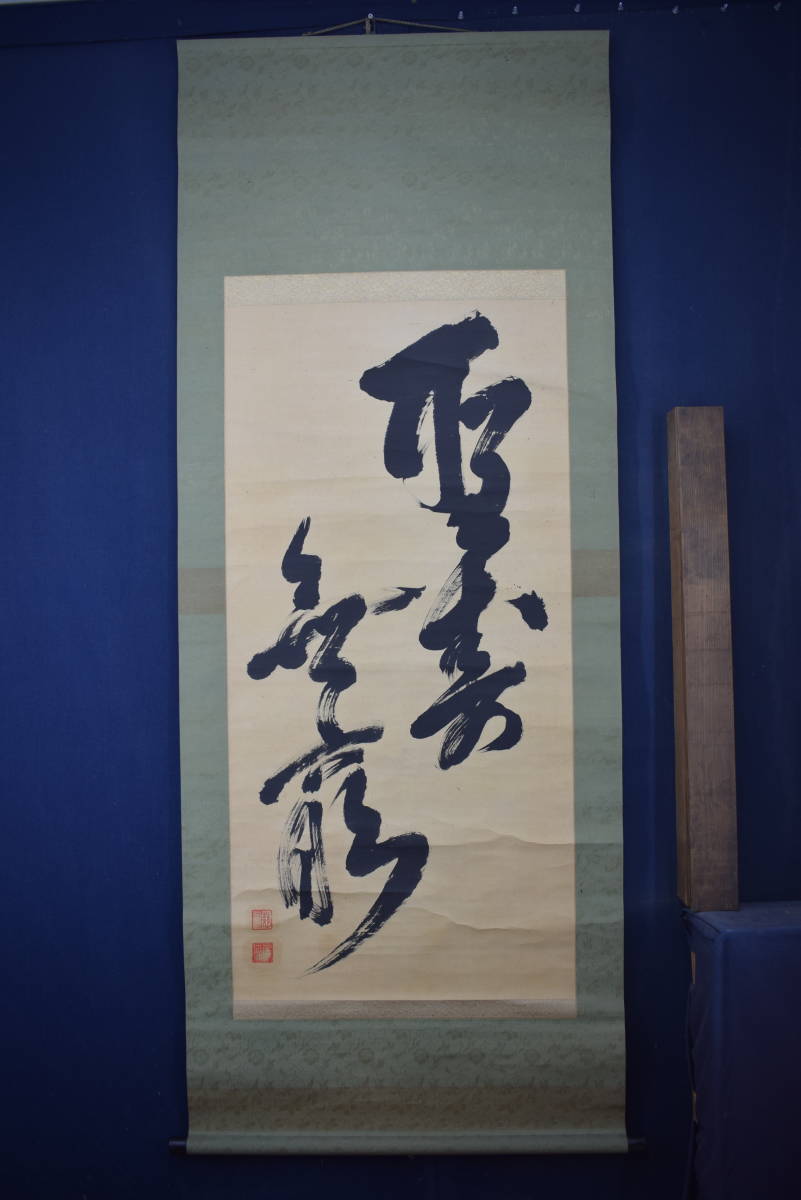 聖壽
無窮